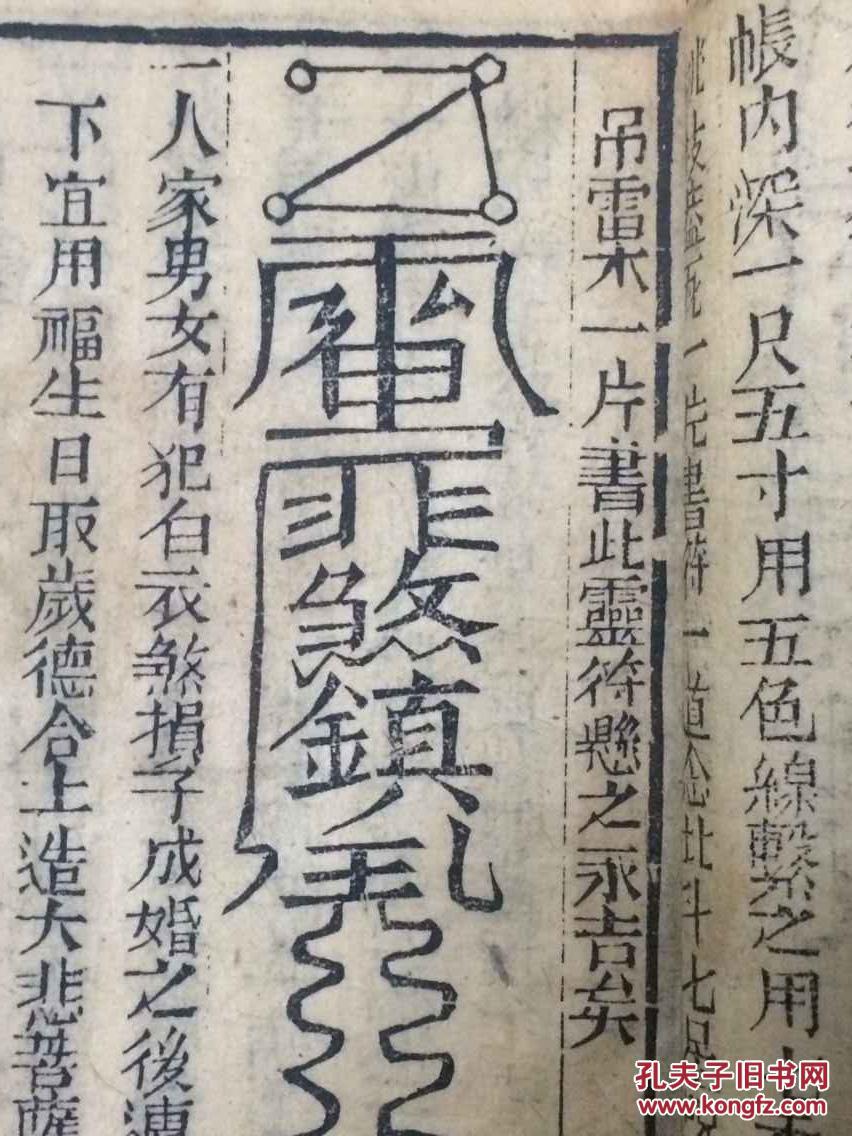 帳内深一尺五寸用五色線繫之用
一片書符一道念北斗七
吊雷木一片書此靈符懸之永吉矣
煞鎮
一人家男女有犯白衣煞損子成婚之後連
下宜用福生日取歲德合上造大悲菩薩
孔夫子旧书网
www.kongfz.com